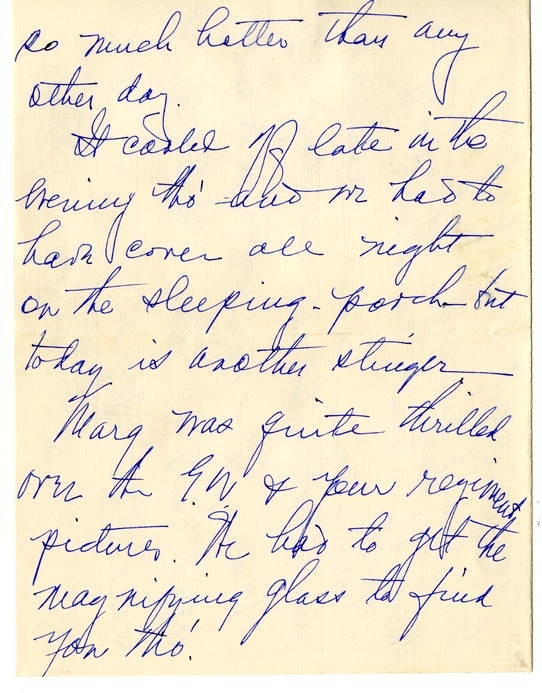 so much hotter than any
other day.
It cooled off late in the
evening tho' - and we had to
have cover all night
on the sleeping-porch - but
today is another stinger
Marg was quite thrilled
over the & your regiment
pictures. We had to get the
magnifying glass to find
you tho'.